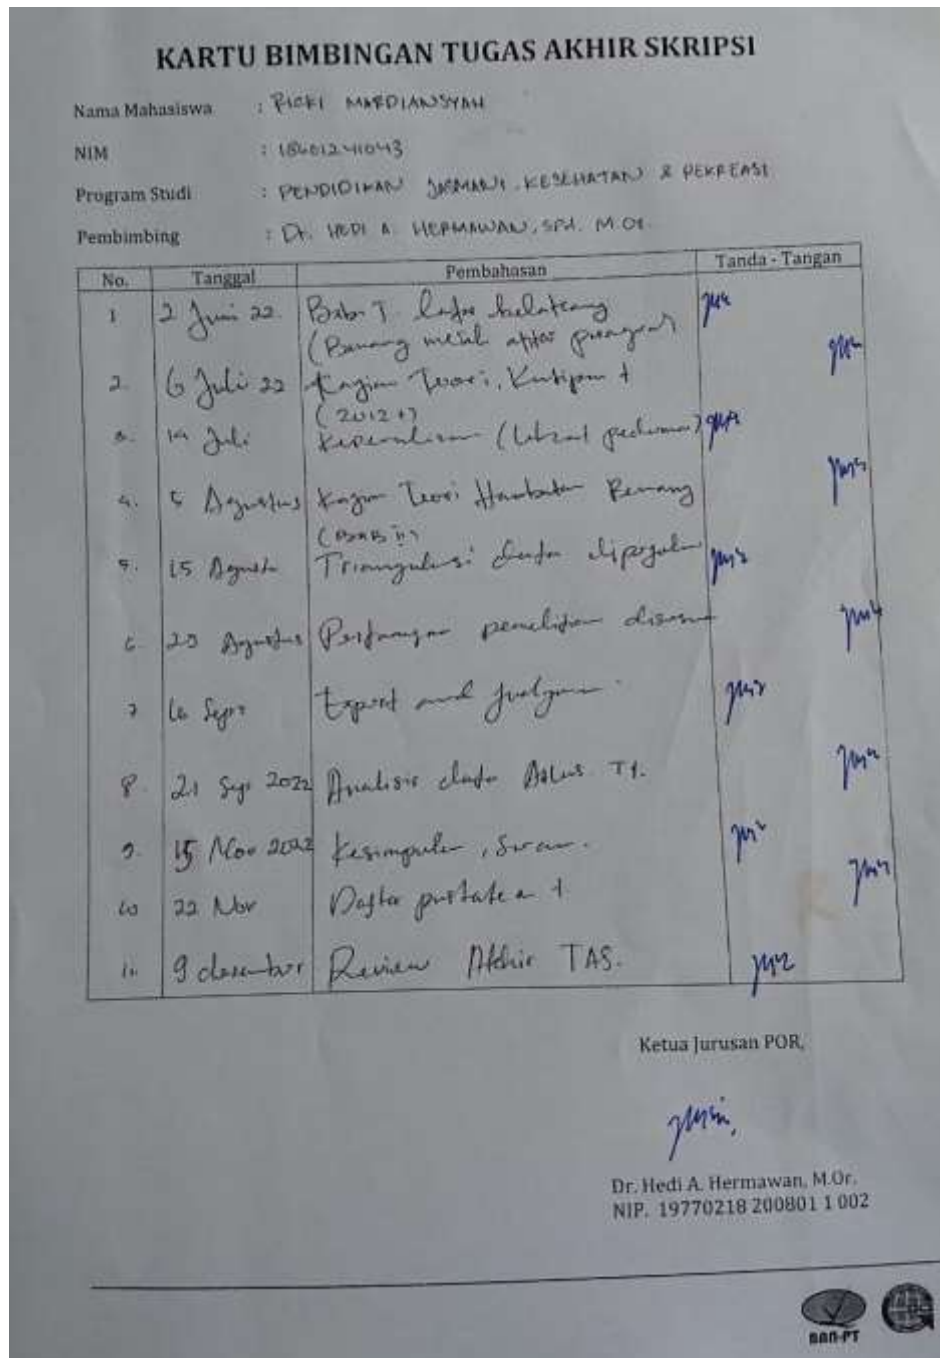 KARTU BIMBINGAN TUGAS AKHIR SKRIPSI
Nama Mahasiswa : RICKI MARDIANSYAH
NIM : 18601241043
Program Studi : PENDIDIKAN JASMANI KESEHATAN & REKREASI
Pembimbing : Dr. HEDI A. HERMAWAN, SPd. M.Or.
No. Tanggal Pembahasan Tanda - Tangan
1 2 Juni 22 Bab I. latar belakang
(Benang merah antar paragraf)
2. 6 Juli 22 Kajian Teori, Kutipan +
(2012+)
3. 14 Juli Kepenulisan (lihat pedoman)
4. 5 Agustus Kajian Teori Hambatan Renang
(BAB II)
5. 15 Agusts Triangulasi data
6. Agustus Pertanyaan penelitian
7 16 Sept Expert and Judgment
8. 21 Sep 2022 Analisis data
9. 15 Nov 2022 Kesimpulan, Saran.
10 22 Nov Daftar pustaka +
11. 9 desember Review Akhir TAS.
Ketua Jurusan POR,
Dr. Hedi A. Hermawan, M.Or.
NIP. 19770218 200801 1 002
BAN-PT